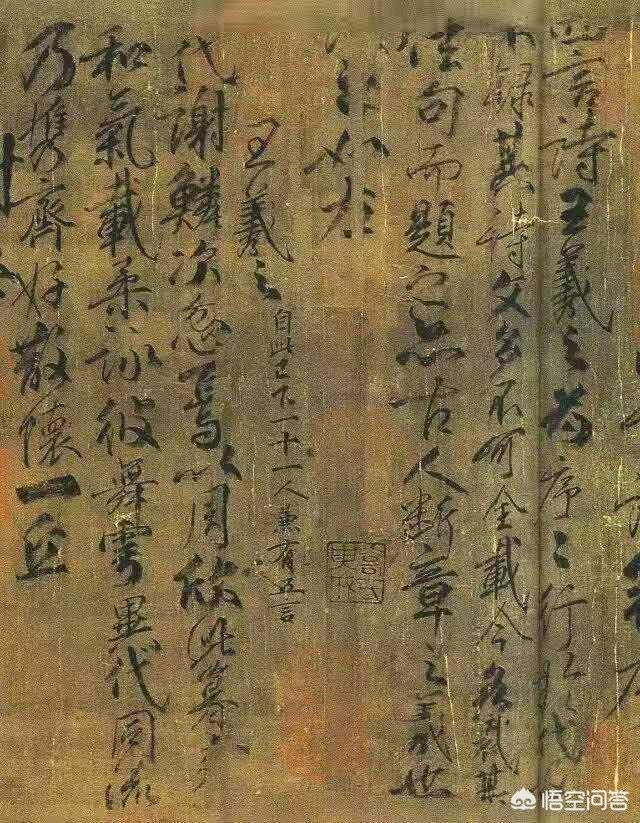 四言詩王羲之為序〻行於代
不錄其詩文多不可全載今各裁其
佳句而題之亦古人斷章之義也
如左
王羲之
自此已下一十一人兼有五言
代謝鱗次忽焉以周欣此暮春
和氣載柔詠彼舞雩異代同流
乃攜齊好散懷一丘
悟空问答